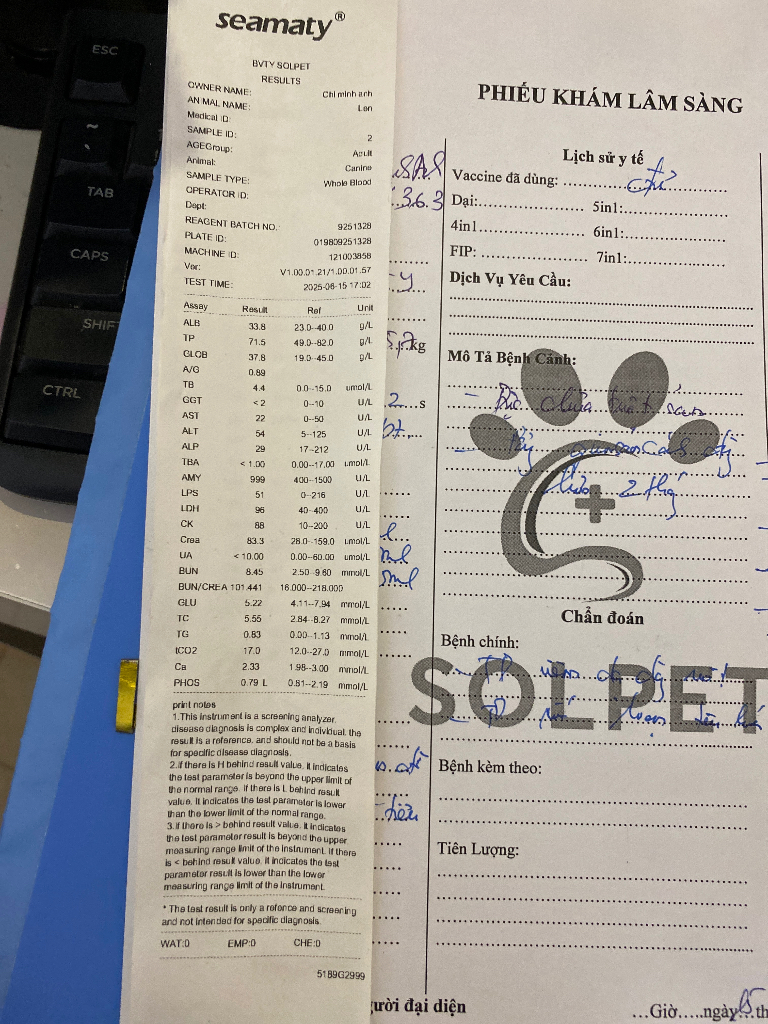 seamaty®
BVTY SOLPET
RESULTS
OWNER NAME: Chi minh anh
ANIMAL NAME: Lon
Medical ID:
SAMPLE ID: 2
AGEGroup: Adult
Animal: Canine
SAMPLE TYPE: Whole Blood
OPERATOR ID:
Dept:
REAGENT BATCH NO. 9251328
PLATE ID: 019809251328
MACHINE ID: 121003858
Ver: V1.00.01.21/1.00.01.57
TEST TIME: 2025-06-15 17:02
Assay Result Ref Unit
ALB 33.8 23.0--40.0 g/L
TP 71.5 49.0--82.0 g/L
GLOB 37.8 19.0--45.0 g/L
A/G 0.89
TB 4.4 0.0--15.0 umol/L
GGT < 2 0--10 U/L
AST 22 0--50 U/L
ALT 54 5--125 U/L
ALP 29 17--212 U/L
TBA < 1.00 0.00--17.00 umol/L
AMY 999 400--1500 U/L
LPS 51 0--216 U/L
LDH 96 40--400 U/L
CK 88 10--200 U/L
Crea 83.3 28.0--159.0 umol/L
UA < 10.00 0.00--60.00 umol/L
BUN 8.45 2.50--9.60 mmol/L
BUN/CREA 101.441 16.000--218.000
GLU 5.22 4.11--7.94 mmol/L
TC 5.55 2.84--8.27 mmol/L
TG 0.83 0.00--1.13 mmol/L
tCO2 17.0 12.0--27.0 mmol/L
Ca 2.33 1.98--3.00 mmol/L
PHOS 0.79 L 0.81--2.19 mmol/L
print notes
1.This instrument is a screening analyzer.
disease diagnosis is complex and individual. the
result is a reference, and should not be a basis
for specific disease diagnosis.
2.If there is H behind result value. It indicates
the test parameter is beyond the upper limit of
the normal range. If there is L behind result
value. It indicates the test parameter is lower
than the lower limit of the normal range.
3.If there is > behind result value. It indicates
the test parameter result is beyond the upper
measuring range limit of the instrument. If there
is < behind result value. It indicates the test
parameter result is lower than the lower
measuring range limit of the instrument.
* The test result is only a refence and screening
and not intended for specific diagnosis.
WAT:0 EMP:0 CHE:0
5189G2999
PHIẾU KHÁM LÂM SÀNG
Lịch sử y tế
Vaccine đã dùng:
Dại: 5in1:
4in1 6in1:
FIP: 7in1:
Dịch Vụ Yêu Cầu:
Mô Tả Bệnh Cảnh:
Chẩn đoán
Bệnh chính:
SOLPET
Bệnh kèm theo:
Tiên Lượng:
kg
s
ml
người đại diện
Giờ ngày 15 th
ESC
TAB
CAPS
SHIF
CTRL